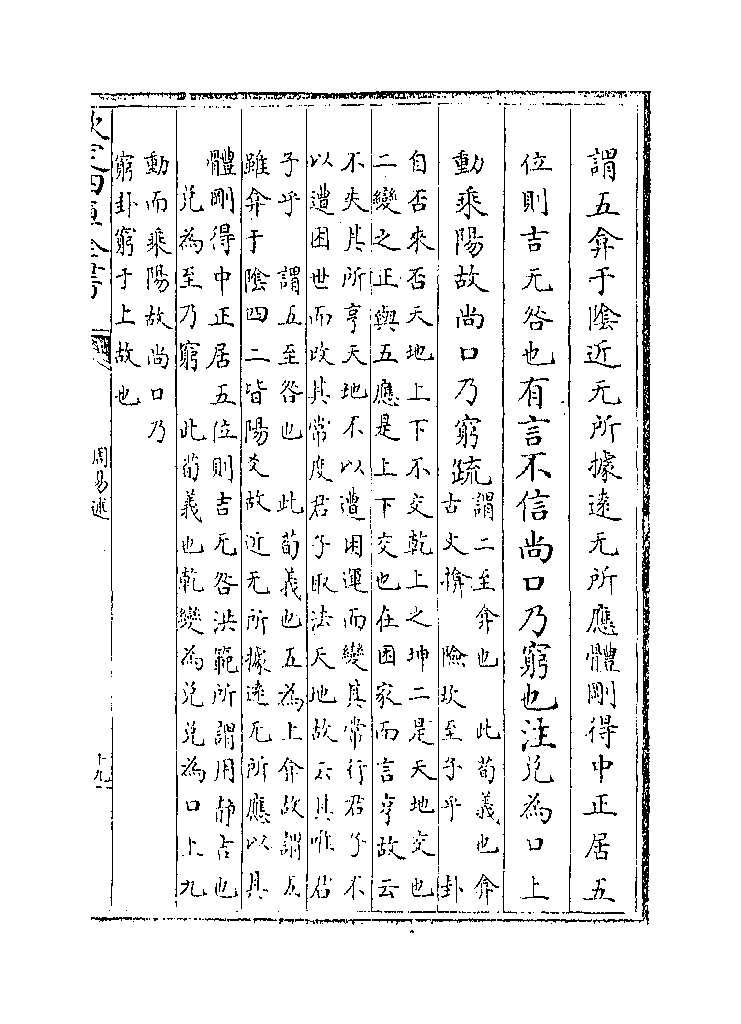 謂五弇于陰近无所據遠无所應體剛得中正居五
位則吉无咎也有言不信尚口乃窮也注兌為口上
動乘陽故尚口乃窮疏
謂二至弇也　此荀義也弇
古文揜　險坎至子乎　卦
自否來否天地上下不交乾上之坤二是天地交也
二變之正與五應是上下交也在困家而言亨故云
不失其所亨天地不以遭困運而變其常行君子不
以遭困世而改其常度君子取法天地故云其唯君
子乎　謂五至咎也　此荀義也五為上弇故謂五
雖弇于陰四二皆陽爻故近无所據遠无所應以其
體剛得中正居五位則吉无咎洪範所謂用靜吉也
兌為至乃窮　此荀義也乾變為兌兌為口上九
動而乘陽故尚口乃
窮卦窮于上故也
欽定四庫全書
周易述
十九